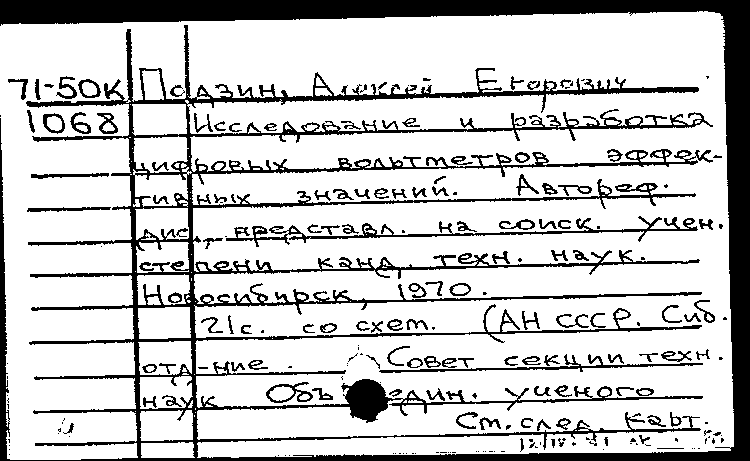 71-50К Подзин, Алексей Егорович
1068 Исследование и разработка
цифровых вольтметров эффек-
тивных значений. Автореф.
дис., представл. на соиск. учен.
степени канд. техн. наук.
Новосибирск, 1970.
21с. со схем. (АН СССР. Сиб.
отд-ние. Совет секции техн.
наук Объедин. ученого
См. след. карт.